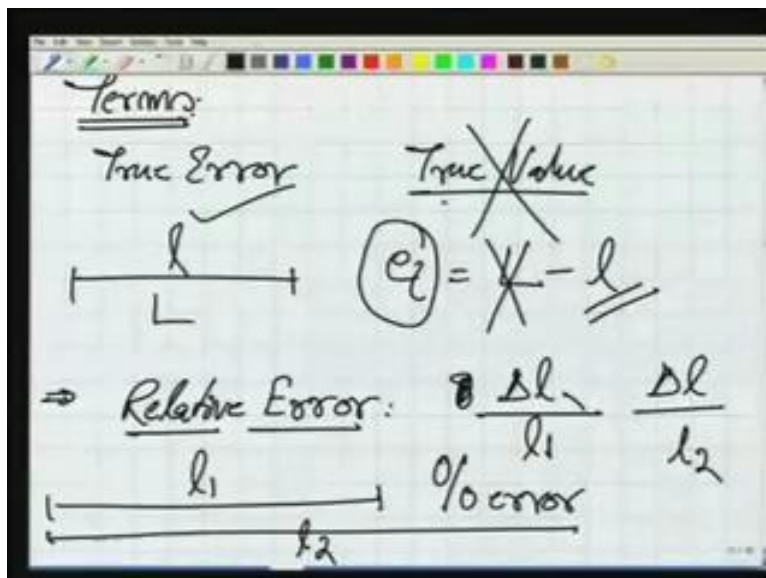 Terms:
True Error True Value
l
L
e_i = L - l
⇒ Relative Error: Δl / l1 Δl / l2
l1
% error
l2